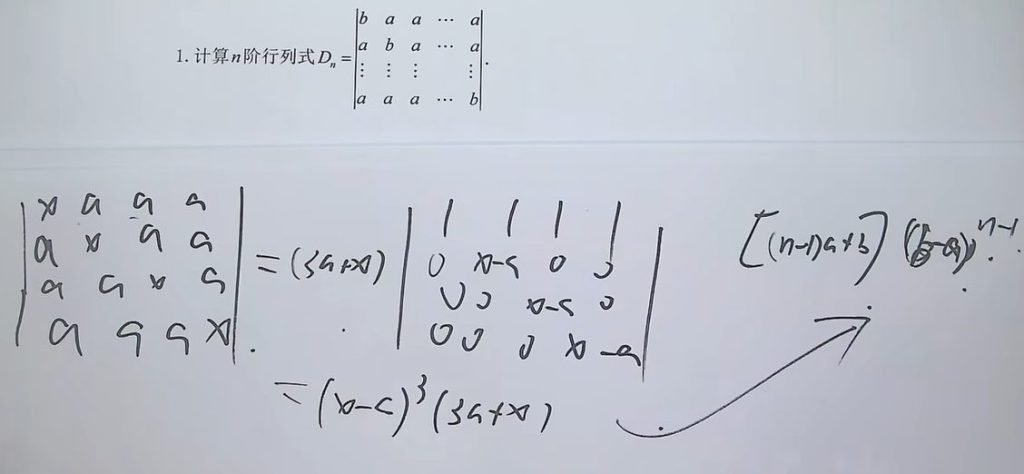 1. 计算n阶行列式Dₙ=|b a a ⋯ a|
|a b a ⋯ a|
|⋮ ⋮ ⋮ ⋮|
|a a a ⋯ b|.
|x a a a|
|a x a a|
|a a x a|
|a a a x|
=(3a+x)
|1 1 1 1|
|0 x-a 0 0|
|0 0 x-a 0|
|0 0 0 x-a|
[(n-1)a+b](b-a)ⁿ⁻¹.
=(x-a)³(3a+x)